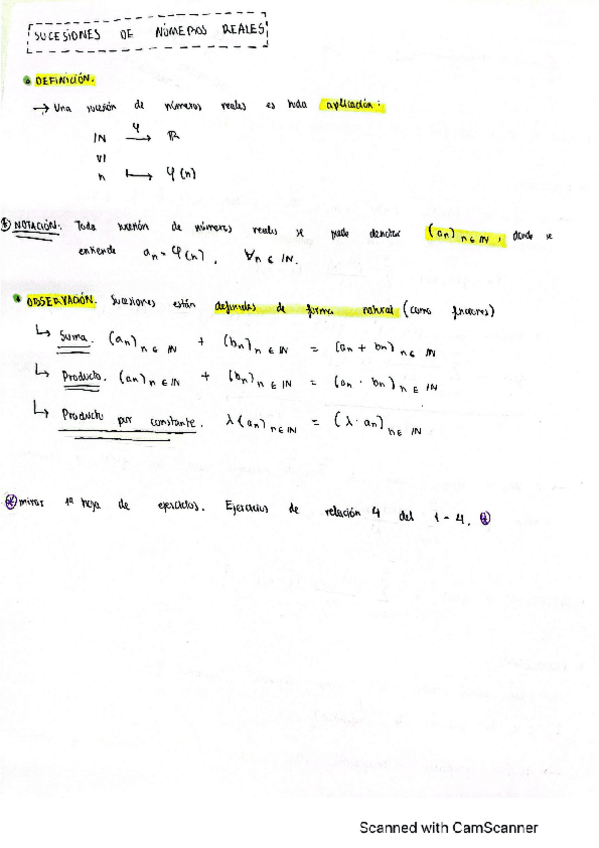 SUCESIONES DE NÚMEROS REALES
DEFINICIÓN.
→ Una sucesión de números reales es toda aplicación:
IN φ→ IR
VI
n ↦ φ(n)
NOTACIÓN. Toda sucesión de números reales se puede denotar (an) n∈IN, donde se
entiende an = φ(n), ∀n ∈ IN.
OBSERVACIÓN. Sucesiones están definidas de forma natural (como funciones)
↳ Suma. (an) n∈IN + (bn) n∈IN = (an + bn) n∈IN
↳ Producto. (an) n∈IN + (bn) n∈IN = (an · bn) n∈IN
↳ Producto por constante. λ(an) n∈IN = (λ·an) n∈IN
* mirar 1ª hoja de ejercicios. Ejercicios de relación 4 del 1-4. *
Scanned with CamScanner